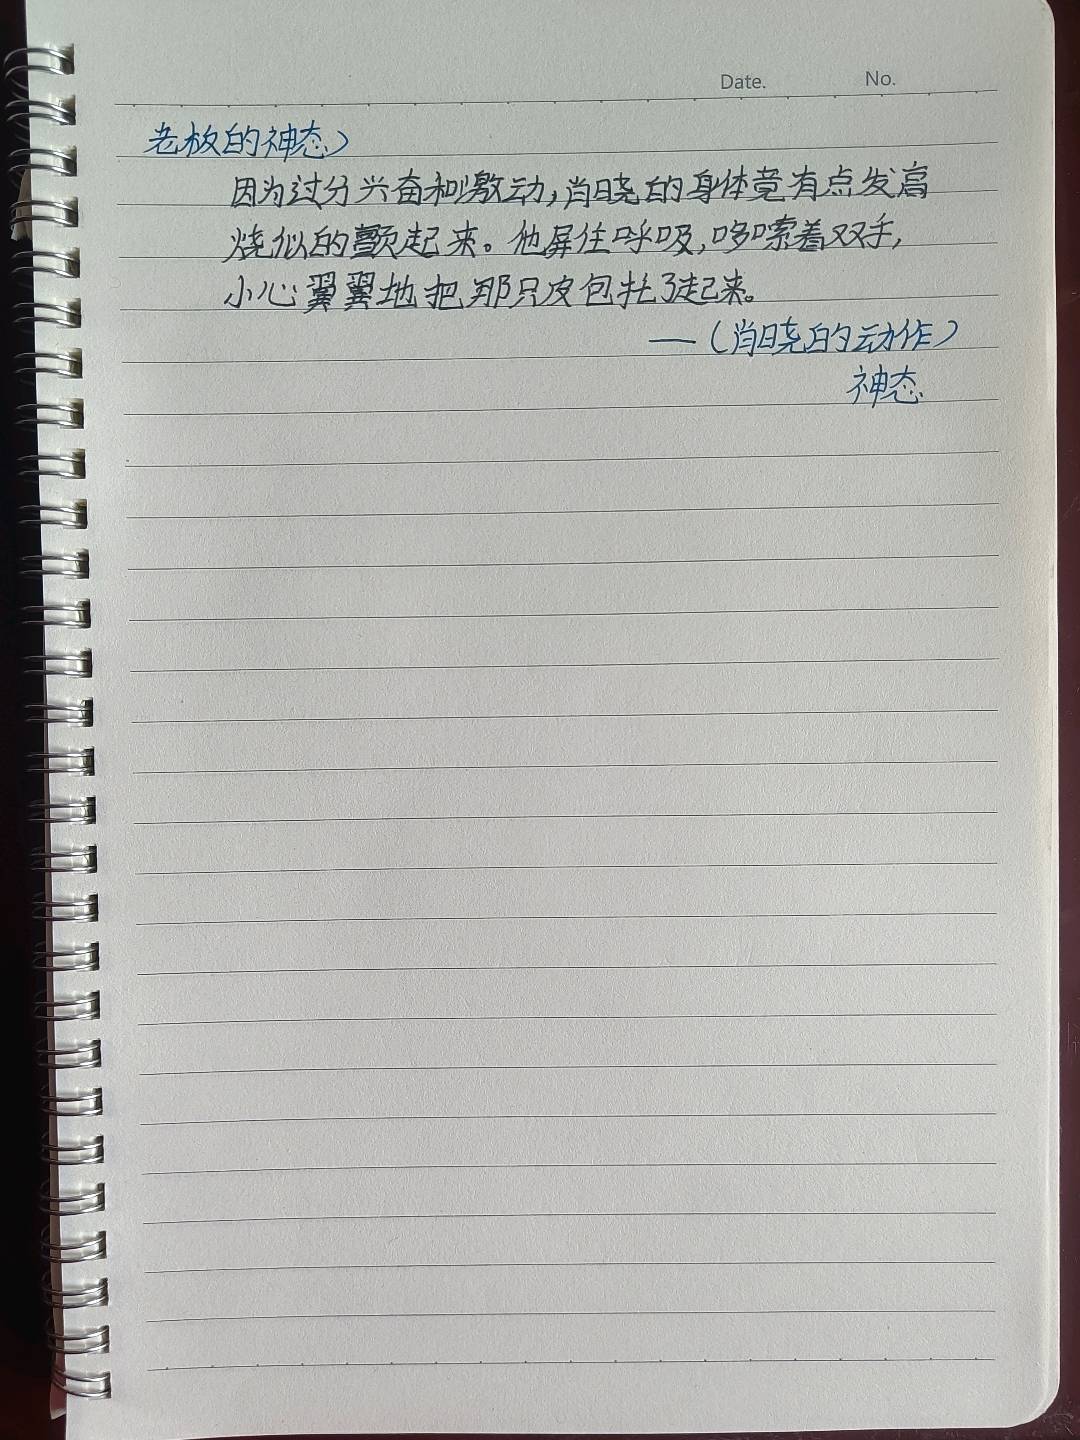 Date. No.
老板的神态)
因为过分兴奋和激动,肖晓的身体竟有点发高
烧似的颤起来。他屏住呼吸,哆嗦着双手,
小心翼翼地把那只皮包托了起来。
—(肖晓的动作)
神态